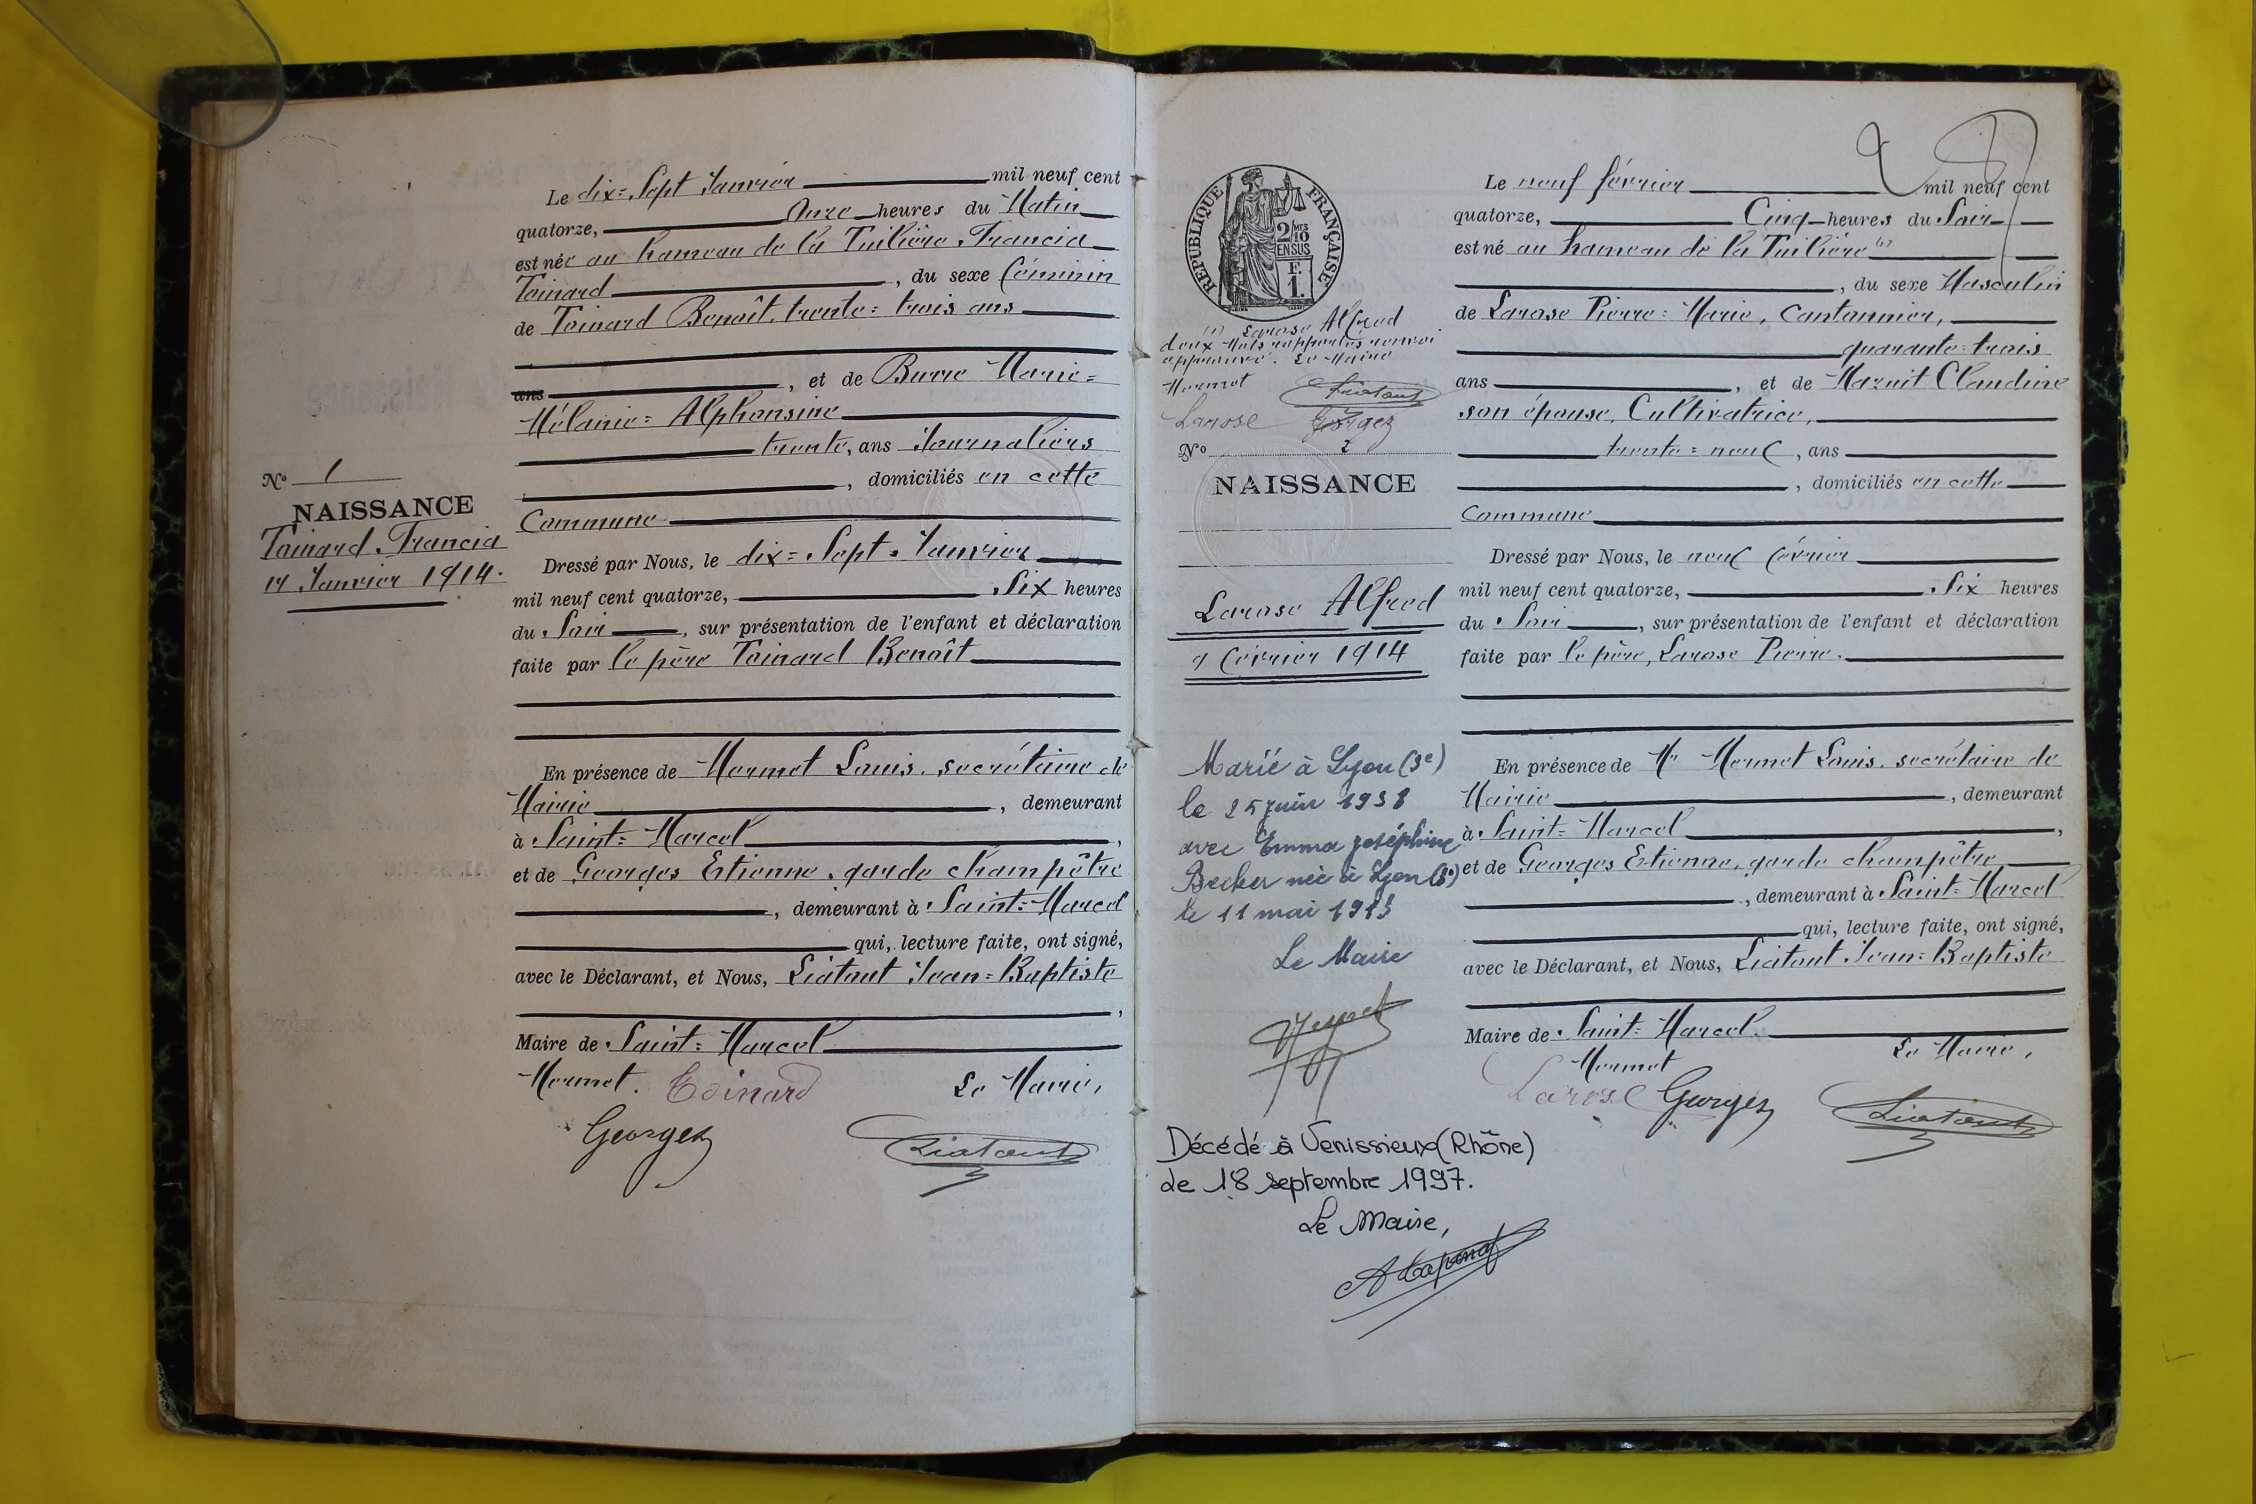 Le dix=Sept Janvier mil neuf cent
quatorze, Onze heures du Matin
est née au hameau de la Tuilière Francia
Toinard, du sexe féminin
de Toinard Benoît, trente=trois ans
ans, et de Burre Marie=
Mélanie=Alphonsine
trente, ans Journaliers
, domiciliés en cette
Commune
Dressé par Nous, le dix=Sept Janvier
mil neuf cent quatorze, Six heures
du Soir, sur présentation de l'enfant et déclaration
faite par le père Toinard Benoît
En présence de Mermet Louis, secrétaire de
Mairie, demeurant
à Saint=Marcel,
et de Georges Etienne, garde champêtre
, demeurant à Saint=Marcel
qui, lecture faite, ont signé,
avec le Déclarant, et Nous, Liatout Jean=Baptiste
,
Maire de Saint=Marcel
Mermet. Toinard Le Maire,
Georges Liatout
No 1
NAISSANCE
Toinard Francia
17 Janvier 1914.
REPUBLIQUE FRANÇAISE
2/10 MES
EN SUS
F.
1.
(1) Larose Alfred
deux Mots rapportés renvoi
approuvé. Le Maire
Mermet Liatout
Larose Georges
No 2
NAISSANCE
Larose Alfred
9 février 1914
Marié à Lyon (3e)
le 25 juin 1938
avec Emma Joséphine
Becker née à Lyon
le 11 mai 1913
Le Maire
Décédé à Venissieux (Rhône)
de 18 septembre 1997.
Le Maire,
2
Le neuf février mil neuf cent
quatorze, Cinq heures du Soir
est né au hameau de la Tuilière (1)
, du sexe Masculin
de Larose Pierre=Marie, Cantonnier,
quarante=trois
ans, et de Mazuit Claudine
son épouse, Cultivatrice,
trente=neuf, ans
, domiciliés en cette
Commune
Dressé par Nous, le neuf février
mil neuf cent quatorze, Six heures
du Soir, sur présentation de l'enfant et déclaration
faite par le père, Larose Pierre.
En présence de Mr Mermet Louis, secrétaire de
Mairie, demeurant
à Saint=Marcel,
et de Georges Etienne, garde champêtre
, demeurant à Saint=Marcel
qui, lecture faite, ont signé,
avec le Déclarant, et Nous, Liatout Jean=Baptiste
Maire de Saint=Marcel.
Mermet Le Maire,
Larose Georges Liatout